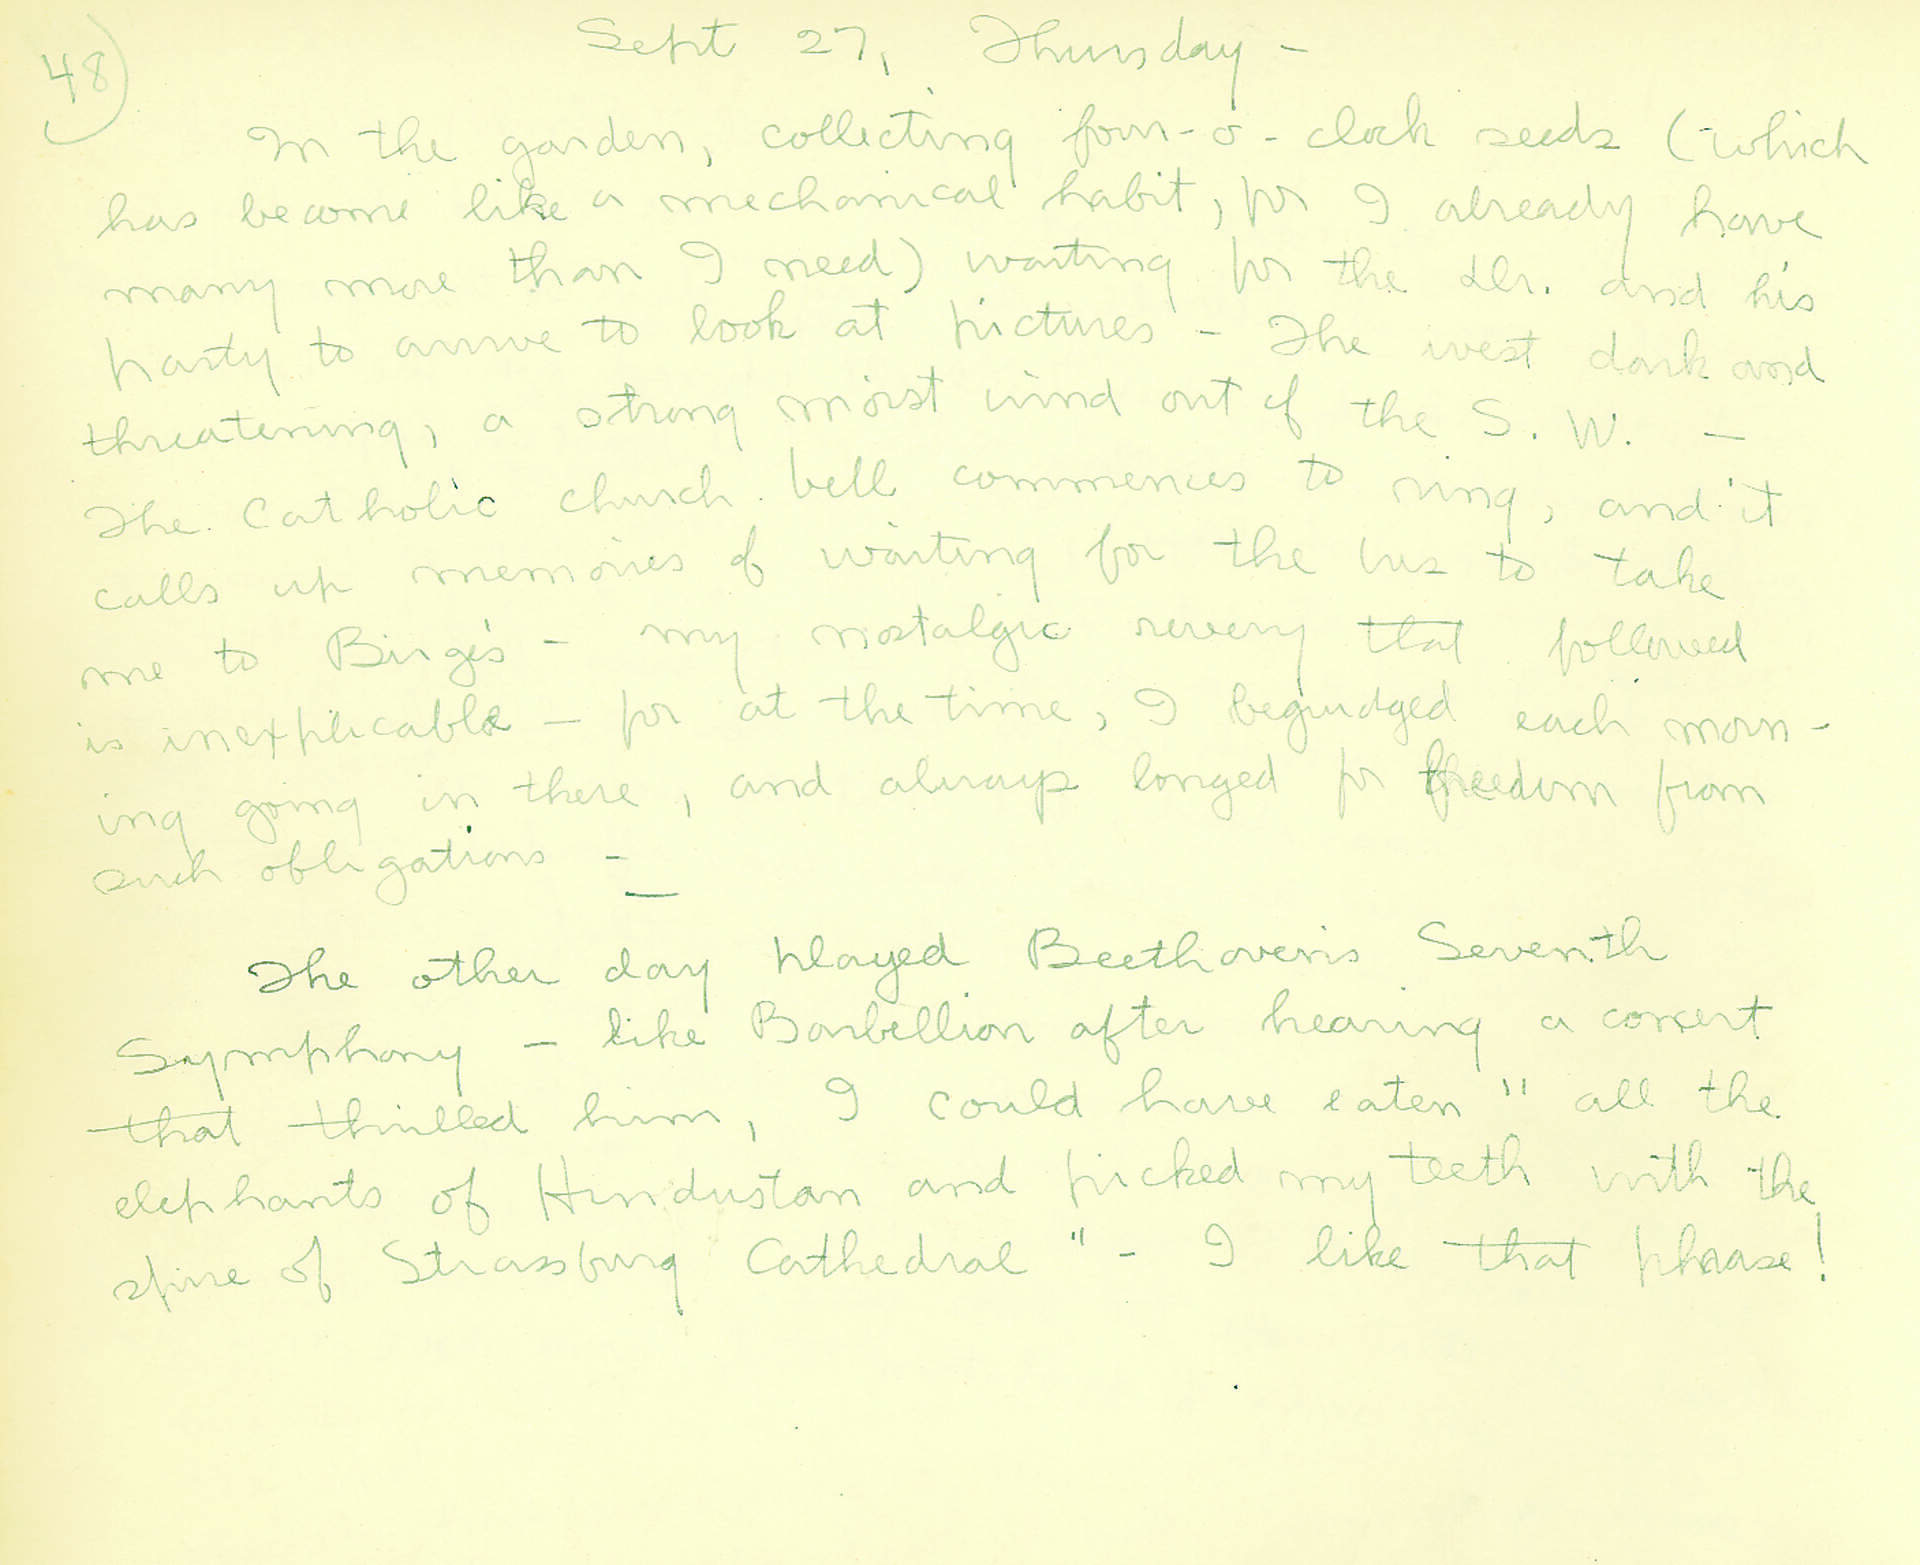 48)
Sept 27, Thursday -
In the garden, collecting four-o-clock seeds (which
has become like a mechanical habit, for I already have
many more than I need) waiting for the Dr. and his
party to arrive to look at pictures - The west dark and
threatening, a strong moist wind out of the S. W. -
The Catholic church bell commences to ring, and it
calls up memories of waiting for the bus to take
me to Birge's - my nostalgic revery that followed
is inexplicable - for at the time, I begrudged each morn-
ing going in there, and always longed for freedom from
such obligations -
The other day played Beethoven's Seventh
Symphony - like Barbellion after hearing a concert
that thrilled him, I could have eaten "all the
elephants of Hindustan and picked my teeth with the
spire of Strassburg Cathedral" - I like that phrase!